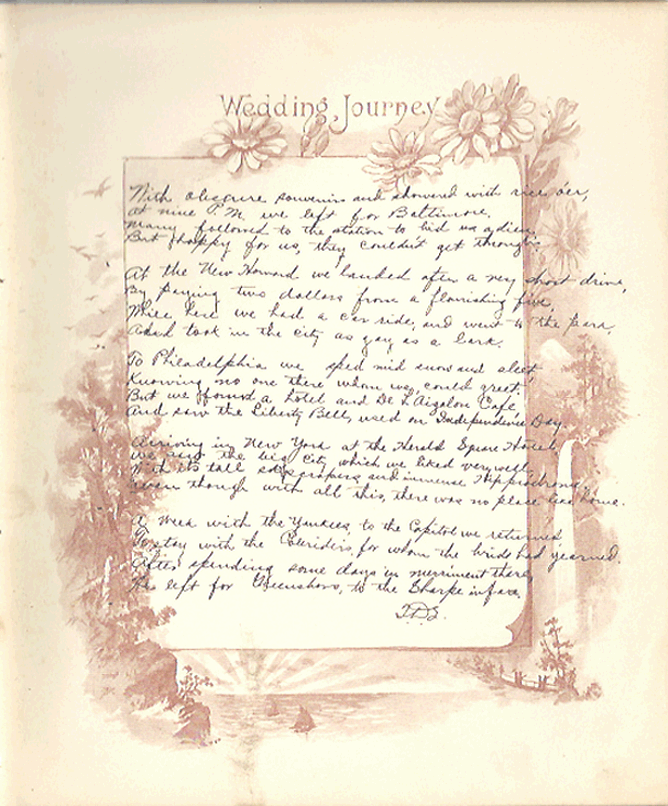 Wedding Journey
With obscure souvenirs and showered with rice o'er,
At nine P.M. we left for Baltimore.
Many followed to the station to bid us adieu,
But happy for us, they couldn't get through.
At the New Howard we landed after a very short drive,
By paying two dollars from a flourishing five,
While here we had a car ride, and went to the park,
And took in the city as gay as a lark.
To Philadelphia we sped mid snow and sleet,
Knowing no one there whom we could greet.
But we found a hotel and De L'Aigalon Café
And saw the Liberty Bell, used on Independence Day.
Arriving in New York at the Herald Square Hotel,
We saw the big city which we liked very well,
With its tall skyscrapers and immense Hippodrome,
Even though with all this, there was no place like home.
A week with the Yankees to the Capitol we returned
To stay with the for whom the bride had yearned.
After spending some days in merriment there,
We left for Greensboro, to the Sharpe infare.